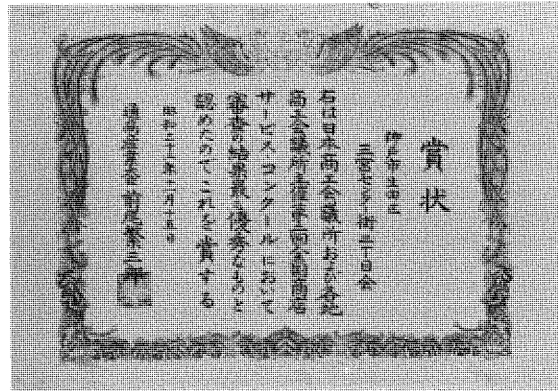 賞状
神戸市生田区
三宮センター街二十日会
右は日本商工会議所および各地
商工会議所 全国商店
サービスコンクールにおいて
審査の結果最も優秀なものと
認めたのでこれを賞する
昭和 年二月十五日
通商産業大臣 前尾繁三郎